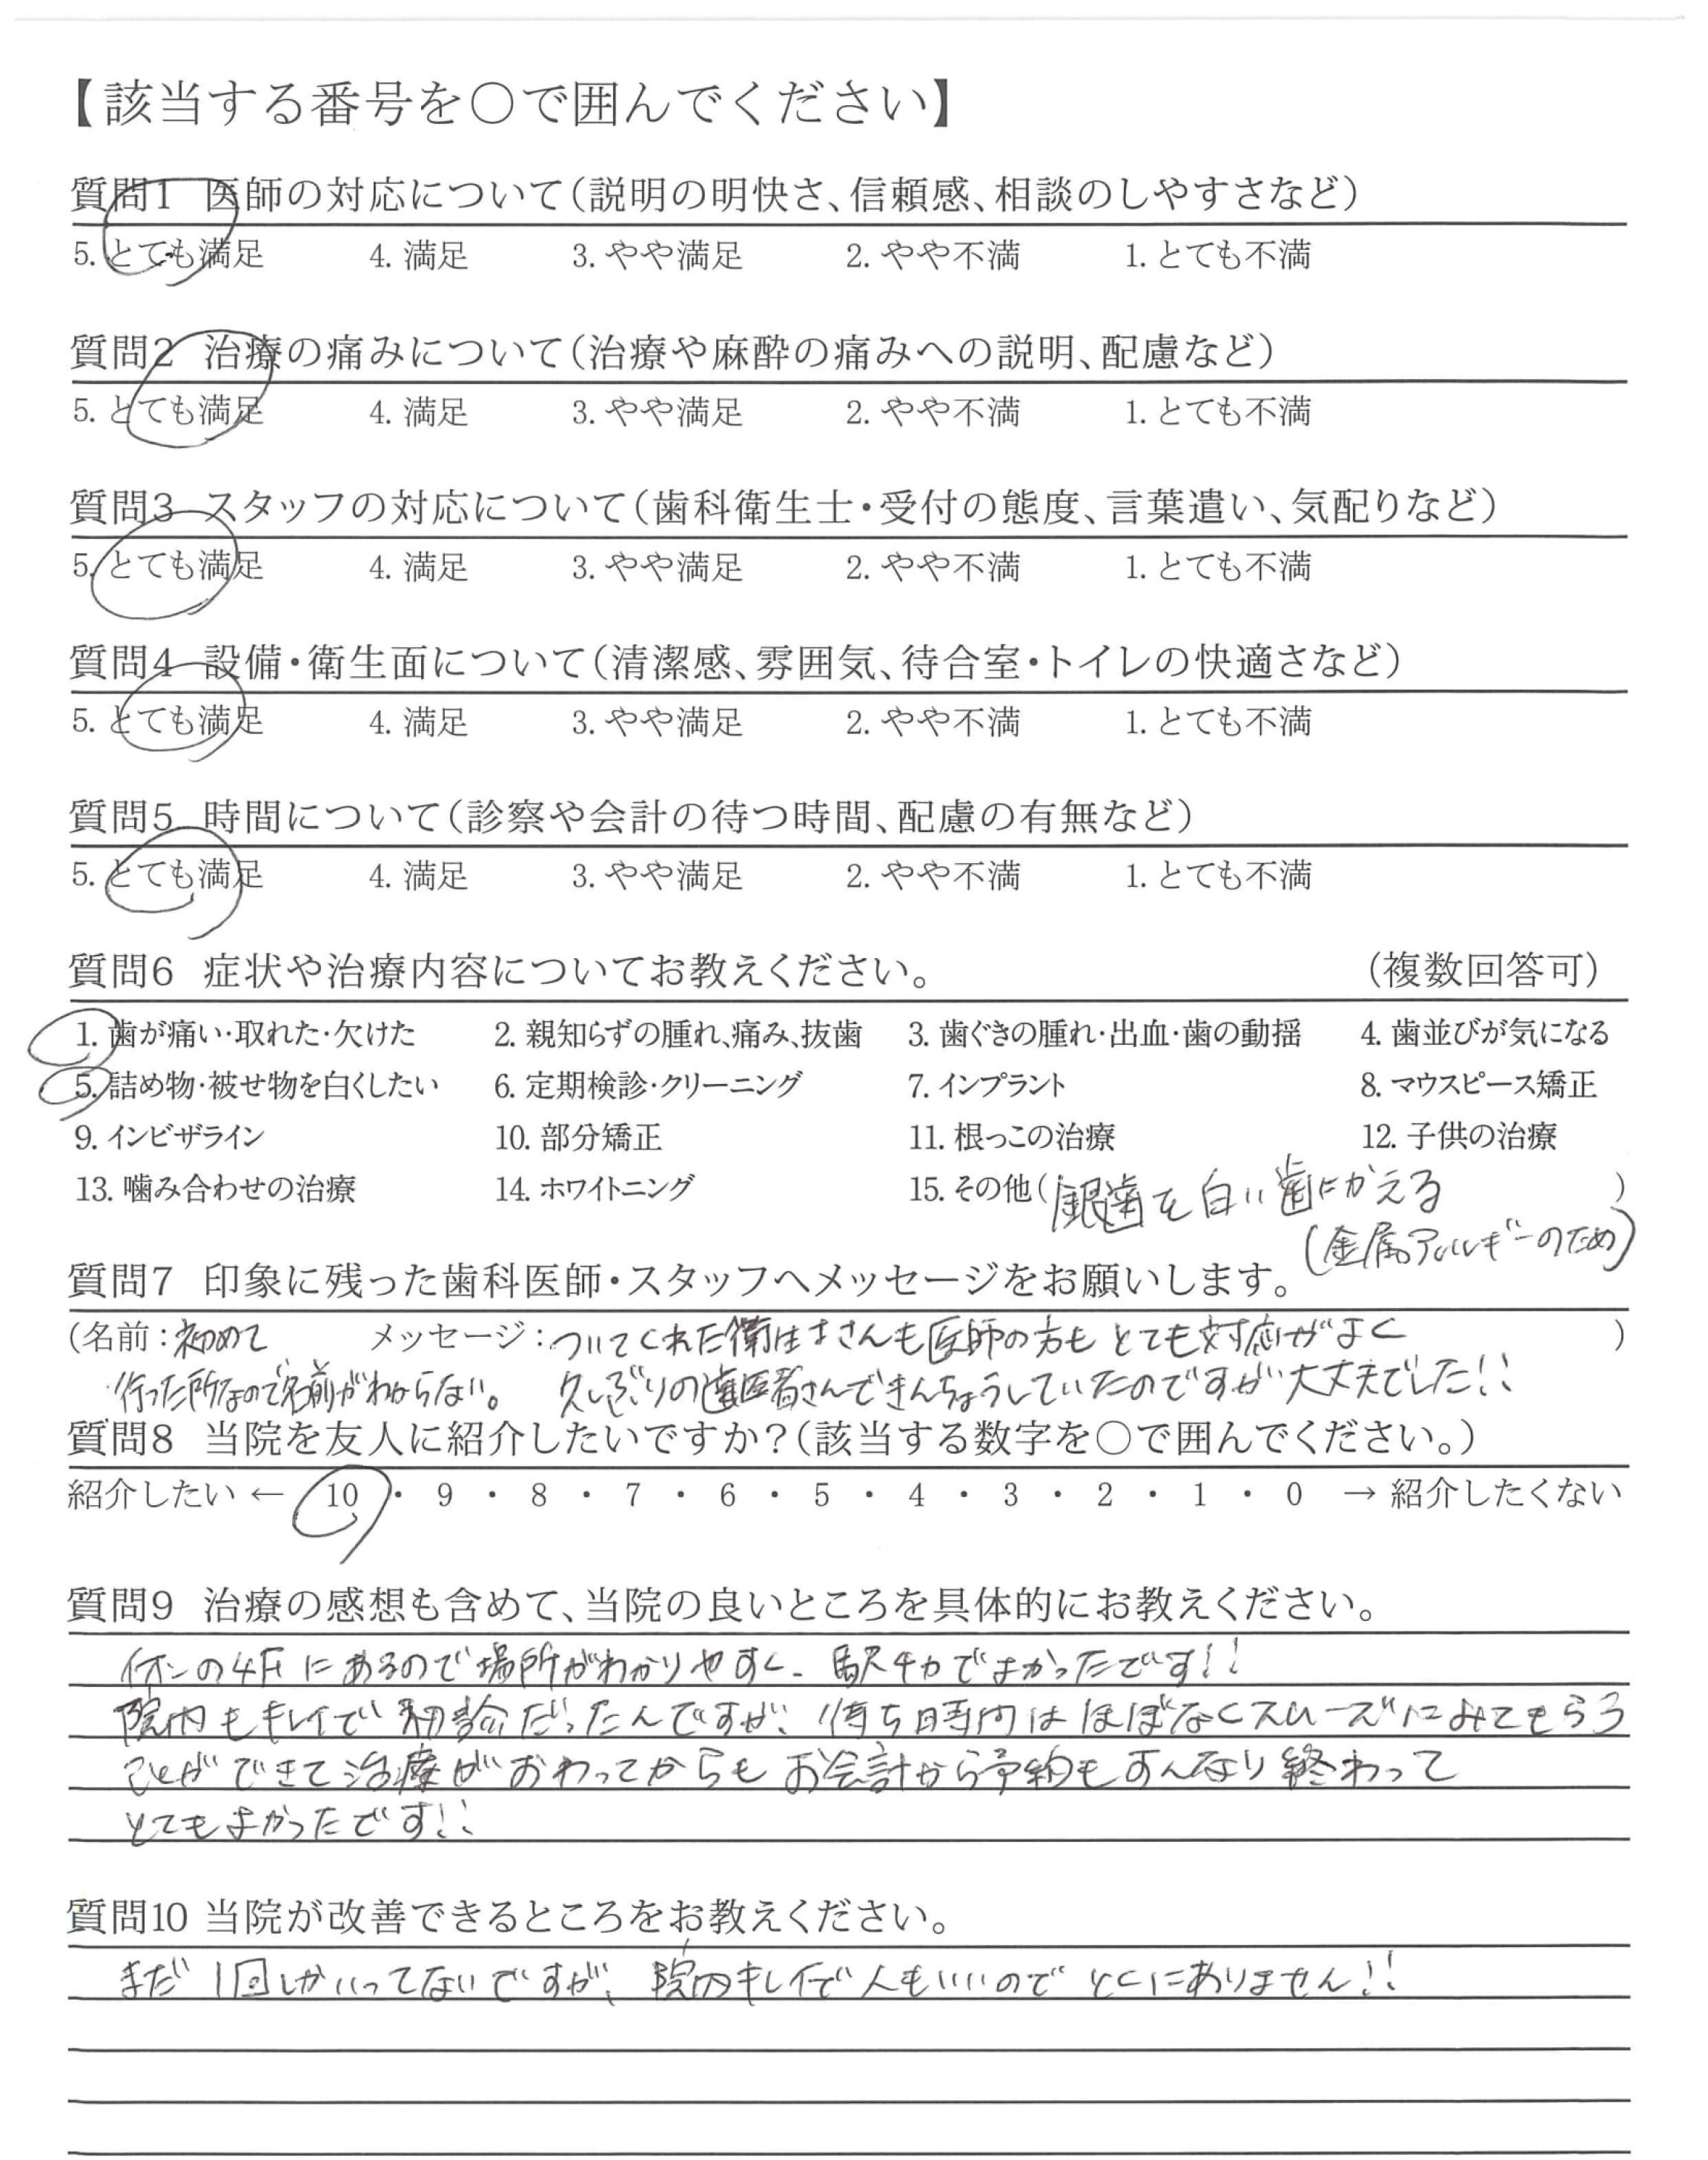 【該当する番号を○で囲んでください】
質問1 医師の対応について(説明の明快さ、信頼感、相談のしやすさなど)
5. とても満足 4. 満足 3. やや満足 2. やや不満 1. とても不満
質問2 治療の痛みについて(治療や麻酔の痛みへの説明、配慮など)
5. とても満足 4. 満足 3. やや満足 2. やや不満 1. とても不満
質問3 スタッフの対応について(歯科衛生士・受付の態度、言葉遣い、気配りなど)
5. とても満足 4. 満足 3. やや満足 2. やや不満 1. とても不満
質問4 設備・衛生面について(清潔感、雰囲気、待合室・トイレの快適さなど)
5. とても満足 4. 満足 3. やや満足 2. やや不満 1. とても不満
質問5 時間について(診察や会計の待つ時間、配慮の有無など)
5. とても満足 4. 満足 3. やや満足 2. やや不満 1. とても不満
質問6 症状や治療内容についてお教えください。 (複数回答可)
1. 歯が痛い・取れた・欠けた 2. 親知らずの腫れ、痛み、抜歯 3. 歯ぐきの腫れ・出血・歯の動揺 4. 歯並びが気になる
5. 詰め物・被せ物を白くしたい 6. 定期検診・クリーニング 7. インプラント 8. マウスピース矯正
9. インビザライン 10. 部分矯正 11. 根っこの治療 12. 子供の治療
13. 噛み合わせの治療 14. ホワイトニング 15. その他(銀歯を白い歯にかえる )
(金属アレルギーのため)
質問7 印象に残った歯科医師・スタッフへメッセージをお願いします。
(名前:初めて メッセージ:ついてくれた衛生士さんも医師の方もとても対応がよく )
行った所なので名前がわからない。 久しぶりの歯医者さんできんちょうしていたのですが大丈夫でした!!
質問8 当院を友人に紹介したいですか?(該当する数字を○で囲んでください。)
紹介したい ← 10 ・ 9 ・ 8 ・ 7 ・ 6 ・ 5 ・ 4 ・ 3 ・ 2 ・ 1 ・ 0 → 紹介したくない
質問9 治療の感想も含めて、当院の良いところを具体的にお教えください。
イオンの4Fにあるので場所がわかりやすく、駅チカでよかったです!!
院内もキレイで初診だったんですが、待ち時間はほぼなくスムーズにみてもらう
ことができて治療がおわってからもお会計から予約もすんなり終わって
とてもよかったです!!
質問10 当院が改善できるところをお教えください。
まだ1回しかいってないですが、院内キレイで人もいいのでとくにありません!!